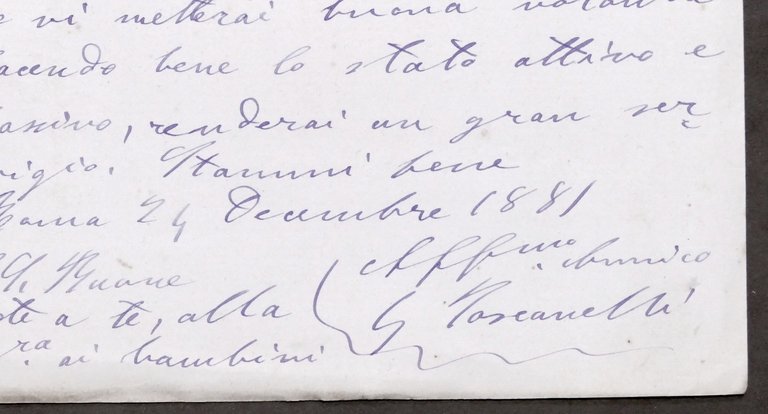 e vi metterai buona volontà
facendo bene lo stato attivo e
passivo, renderai un gran ser-
vigio. Stammi bene
Roma 24 Decembre 1881
Buone
te a te, alla
ra ai bambini
Affmo Amico
G Toscanelli